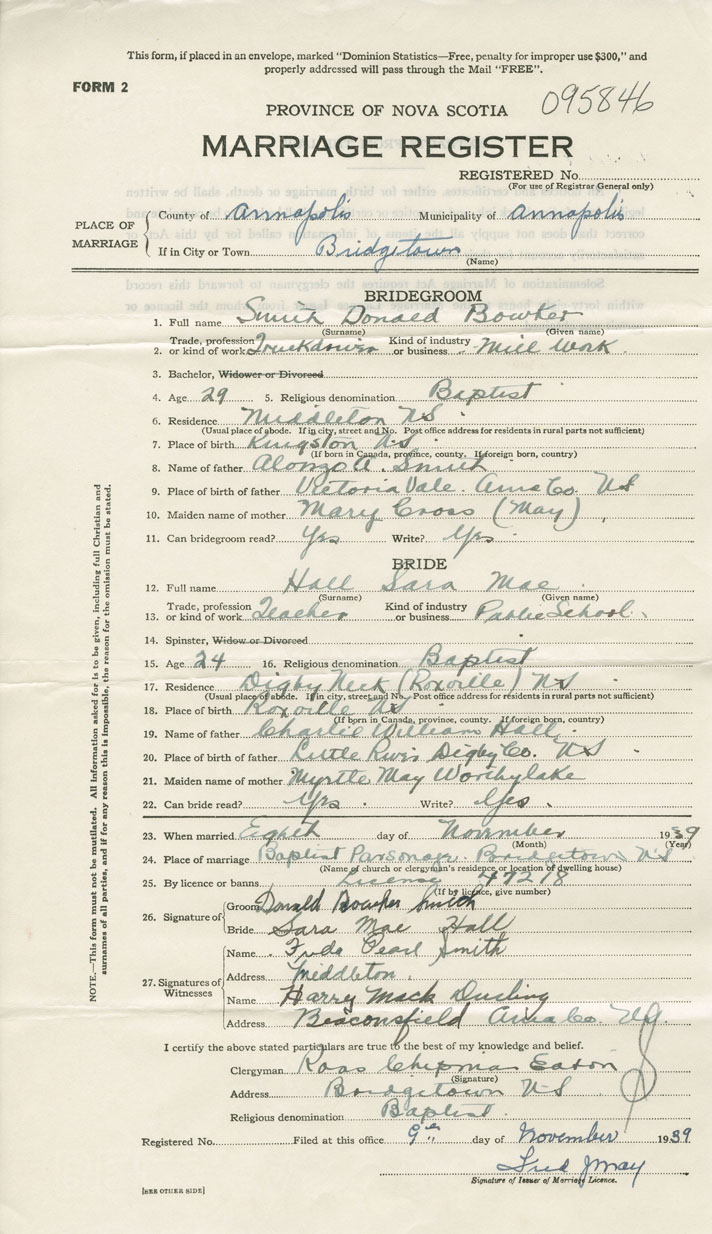 This form, if placed in an envelope, marked "Dominion Statistics—Free, penalty for improper use $300," and
properly addressed will pass through the Mail "FREE".
FORM 2
095846
PROVINCE OF NOVA SCOTIA
MARRIAGE REGISTER
REGISTERED No.
(For use of Registrar General only)
PLACE OF MARRIAGE
County of Annapolis Municipality of Annapolis
If in City or Town Bridgetown
(Name)
BRIDEGROOM
1. Full name Smith Donald Bowker
(Surname) (Given name)
2. Trade, profession or kind of work Truckdriver Kind of industry or business Mill Work
3. Bachelor, Widower or Divorced
4. Age 29 5. Religious denomination Baptist
6. Residence Middleton NS
(Usual place of abode. If in city, street and No. Post office address for residents in rural parts not sufficient)
7. Place of birth Kingston NS
(If born in Canada, province, county. If foreign born, country)
8. Name of father Alonzo A. Smith
9. Place of birth of father Victoria Vale. Anna Co. NS
10. Maiden name of mother Mary Cross (May)
11. Can bridegroom read? Yes Write? Yes
BRIDE
12. Full name Hall Sara Mae
(Surname) (Given name)
13. Trade, profession or kind of work Teacher Kind of industry or business Public School.
14. Spinster, Widow or Divorced
15. Age 24 16. Religious denomination Baptist
17. Residence Digby Neck (Roxville) NS
(Usual place of abode. If in city, street and No. Post office address for residents in rural parts not sufficient)
18. Place of birth Roxville NS
(If born in Canada, province, county. If foreign born, country)
19. Name of father Charlie William Hall
20. Place of birth of father Little River Digby Co. NS
21. Maiden name of mother Myrtle May Worthylake
22. Can bride read? Yes Write? Yes
23. When married Eighth day of November 1939
(Month) (Year)
24. Place of marriage Baptist Parsonage. Bridgetown NS
(Name of church or clergyman's residence or location of dwelling house)
25. By licence or banns License 47218
(If by licence, give number)
26. Signature of
Groom Donald Bowker Smith
Bride Sara Mae Hall
27. Signatures of Witnesses
Name Pearl Smith
Address Middleton.
Name Harry Mack Durling
Address Beaconsfield Anna Co. NS.
I certify the above stated particulars are true to the best of my knowledge and belief.
Clergyman Ross Chipman Eaton
(Signature)
Address Bridgetown NS
Religious denomination Baptist.
Registered No. Filed at this office 9th day of November 1939
Fred J May
Signature of Issuer of Marriage Licence.
[SEE OTHER SIDE]
NOTE.—This form must not be mutilated. All Information asked for is to be given, including full Christian and
surnames of all parties, and if for any reason this is impossible, the reason for the omission must be stated.